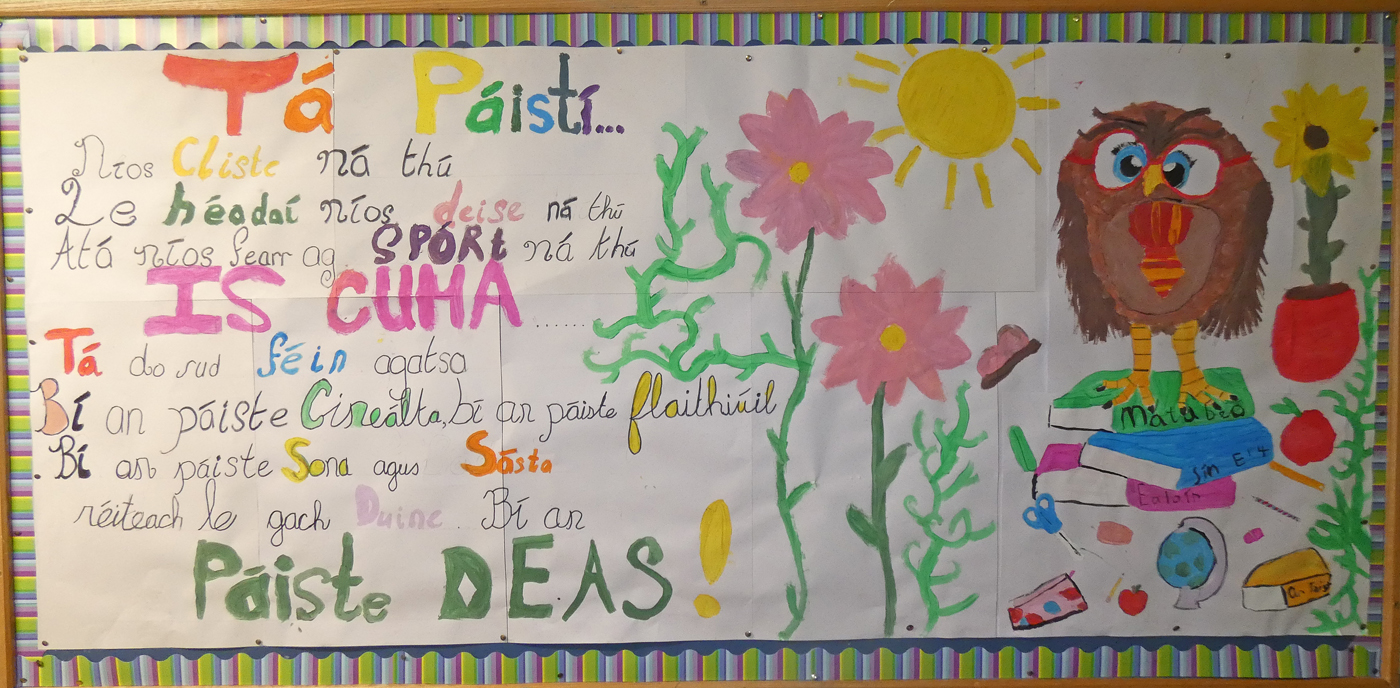 Tá Páistí...
Níos Cliste ná thú
Le héadaí níos deise ná thú
Atá níos fearr ag SPÓRt ná thú
IS CUMA ......
Tá do rud féin agatsa
Bí an páiste Cineálta, bí an páiste flaithiúil
Bí an páiste Sona agus Sásta
réiteach le gach Duine. Bí an
Páiste DEAS!
Mata beo
Sin E! 4
Ealaín